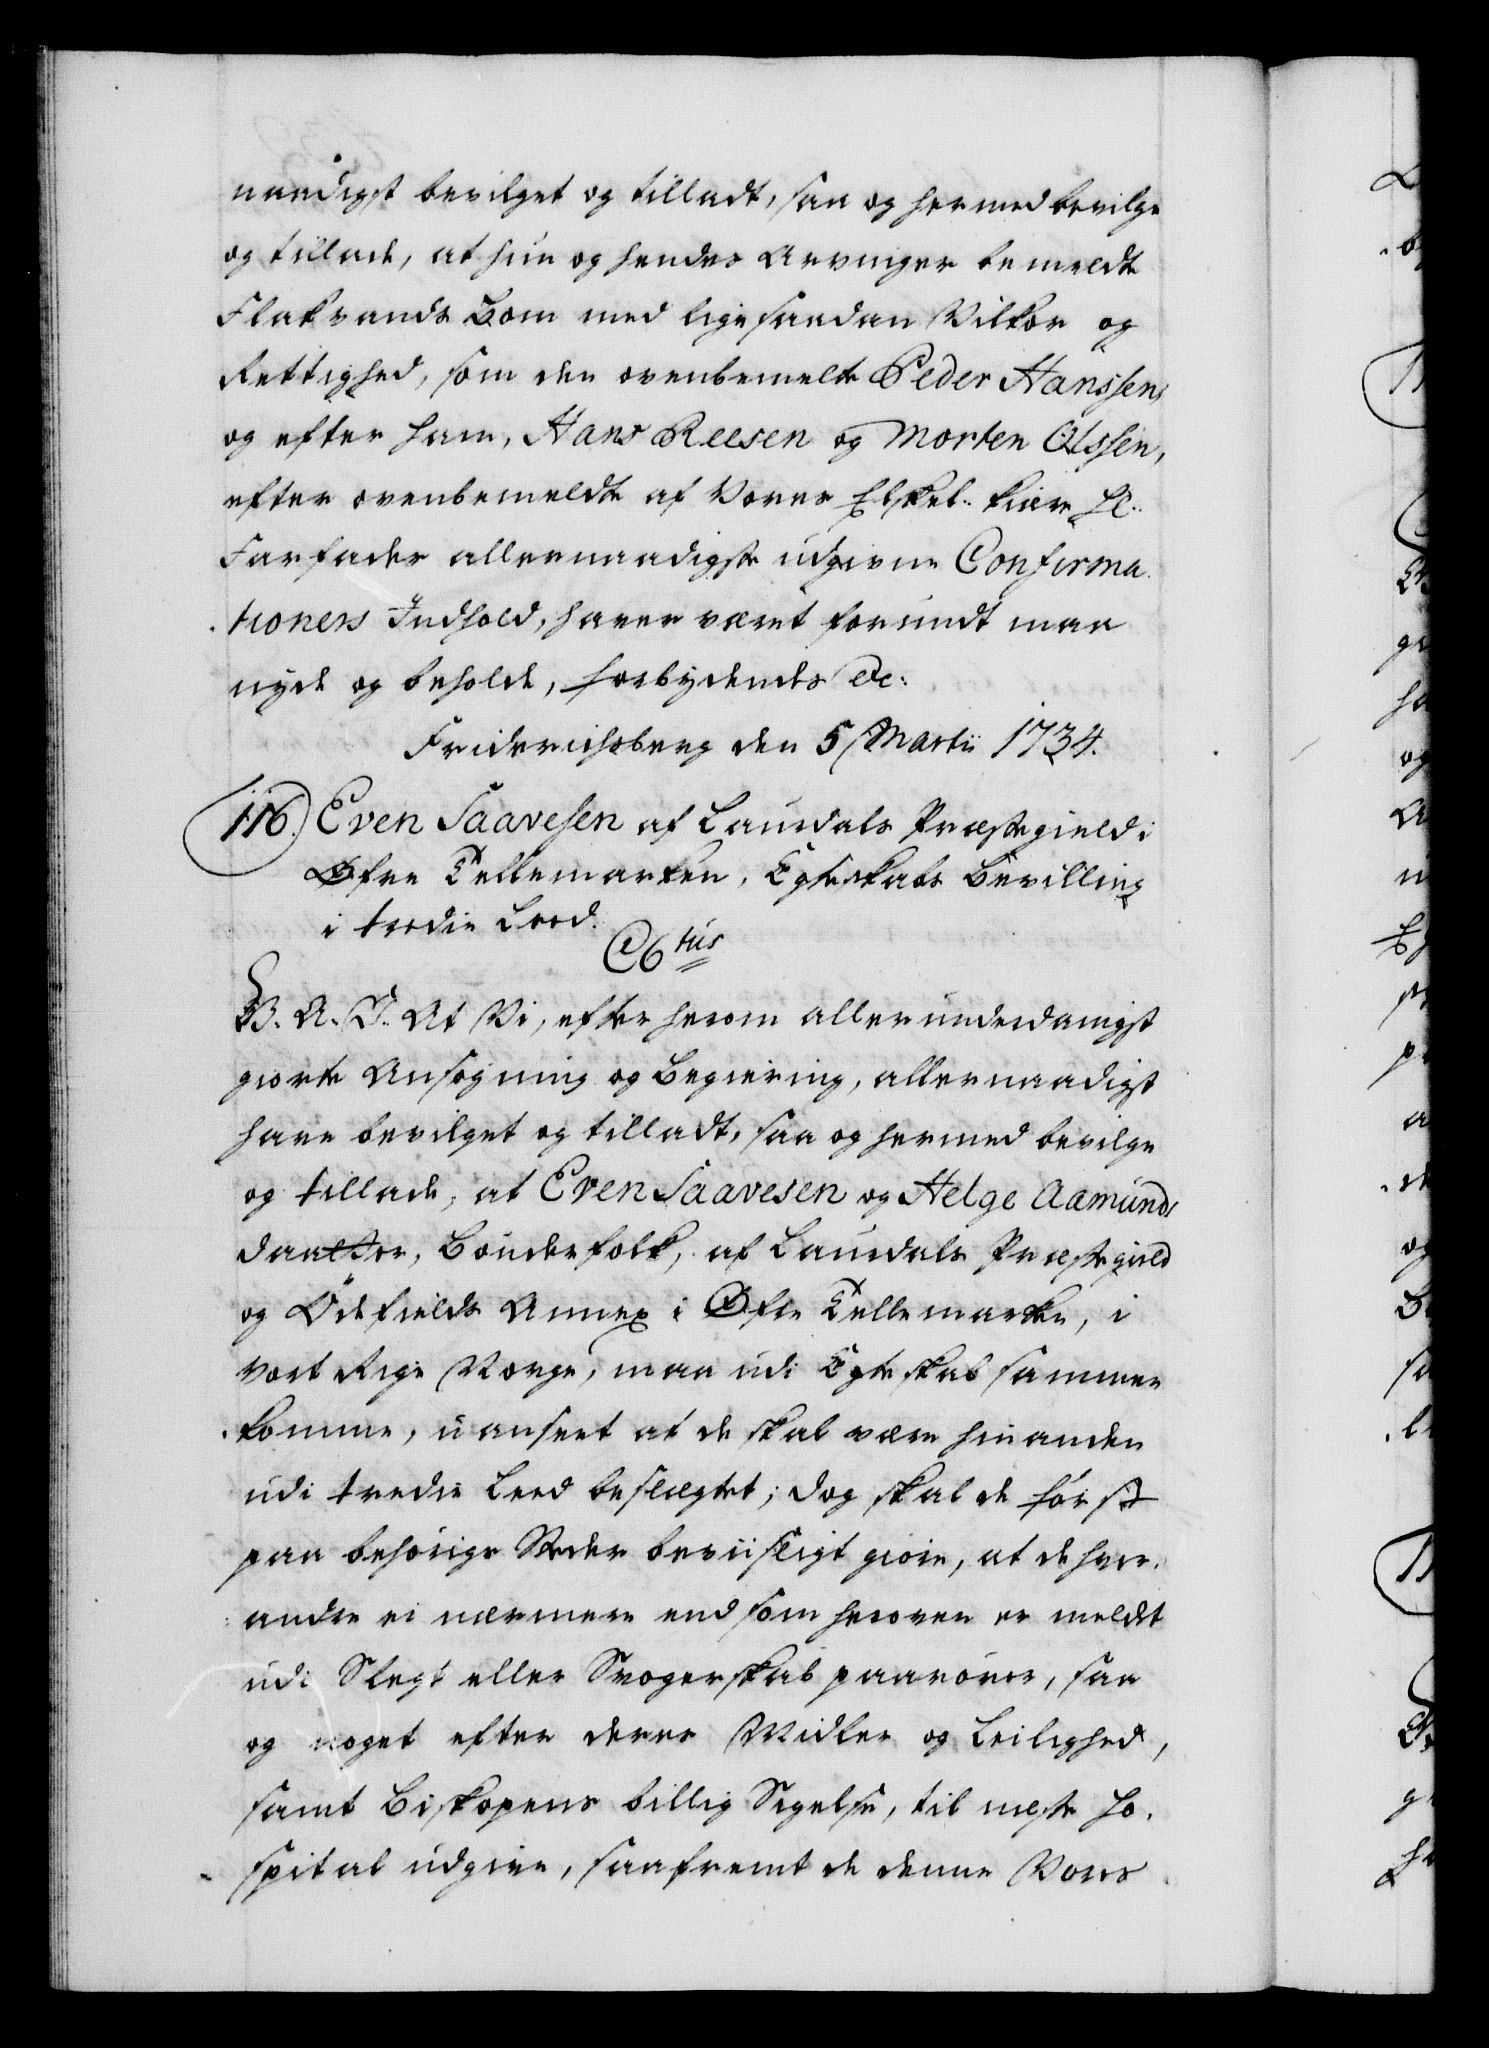 naadigst bevilget og tilladt, saa og hermed bevilge
og tillade, at hun og hendes Arvinger bemeldte
Flakvands Bom med lige saadan Vilkor og
Rettighed, som den ovenbemelte Peder Hanssen,
og efter ham, Hans Reesen og Morten Olssen,
efter ovenbemeldte af Vores Elskel: kiære Hr:
Farfader allernaadigste udgivne Confirma
tioners Indhold, haver været forundt maa
nyde og beholde, forbydendes &c:
Friderichsberg den 5 Martii 1734.
116. Even Saavesen af Laurdals Præstegield i
Øfre Tellemarken, Egteskabs Bevilling
i tredie Leed.
C6tus
G. A. V. At Vi, efter herom allerunderdanigst
giorte Ansøgning og Begiering, allernaadigst
have bevilget og tilladt, saa og hermed bevilge
og tillade, at Even Saavesen og Helge Aamunds
daatter, Bønderfolk, af Laurdals Præstegield
og Ödefields Annex i Øfre Tellemarken, i
vort Rige Norge, maa udi Egteskab sammen
komme, uanseet at de skal være hinanden
udi tredie Leed beslægtet; dog skal de først
paa behørige Steder beviisligt giøre, at de hver,
andre ei nærmere end som heroven er meldt
udi Slegt eller Svogerskab paarører, saa
og noget efter deres Midler og Leilighed,
samt Biskopens billig Sigelse, til næste Ho,
spital udgive, saafremt de denne Vores